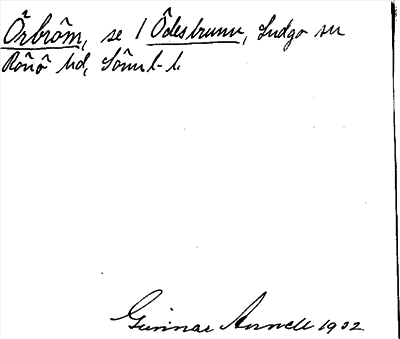 Örbröm, se 1 Ödesbrunn, Ludgo sn
Rönö hd, Sörml. l.
Gunnar Arnell 1902